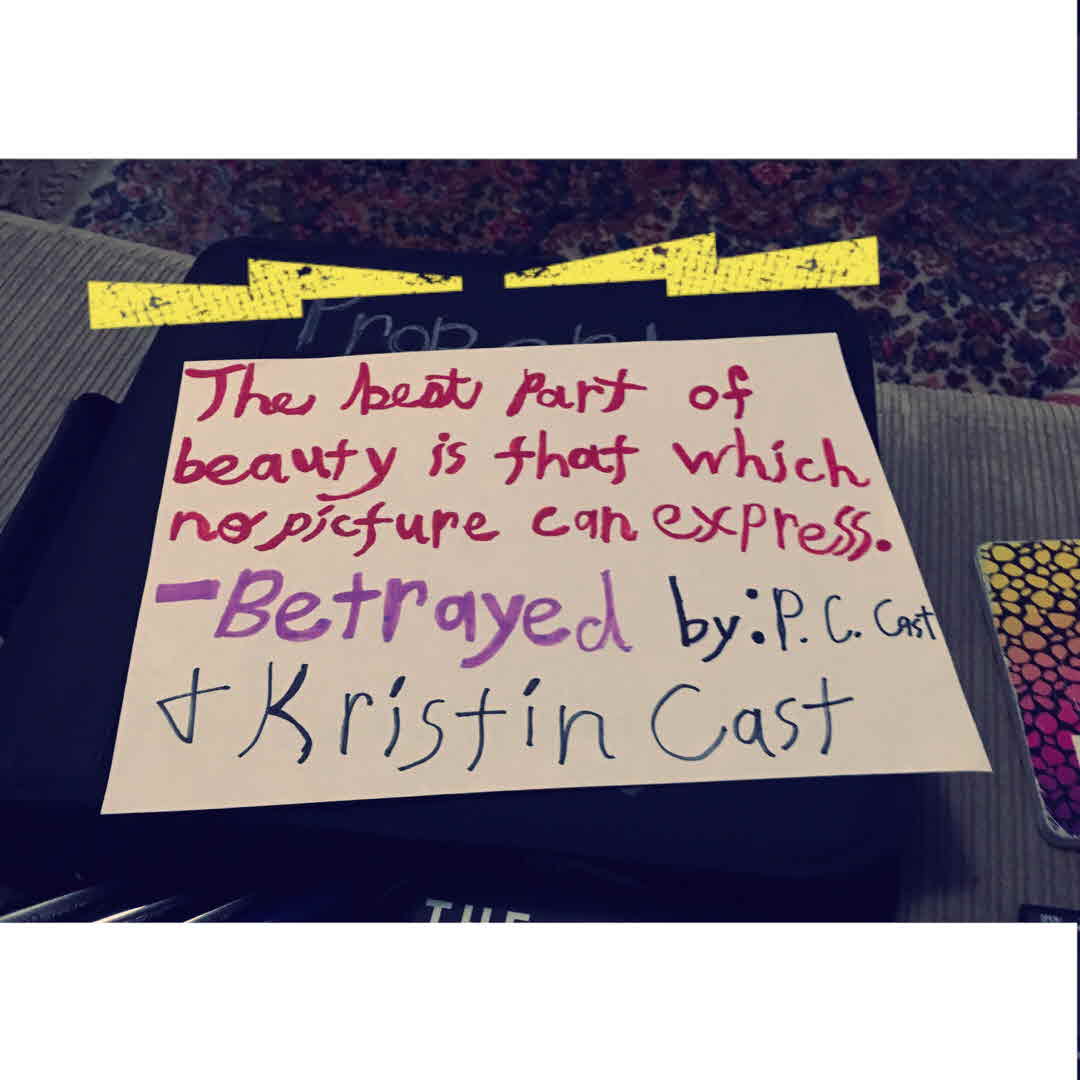 The best part of
beauty is that which
no picture can express.
-Betrayed by: P. C. Cast
+ Kristin Cast
THE